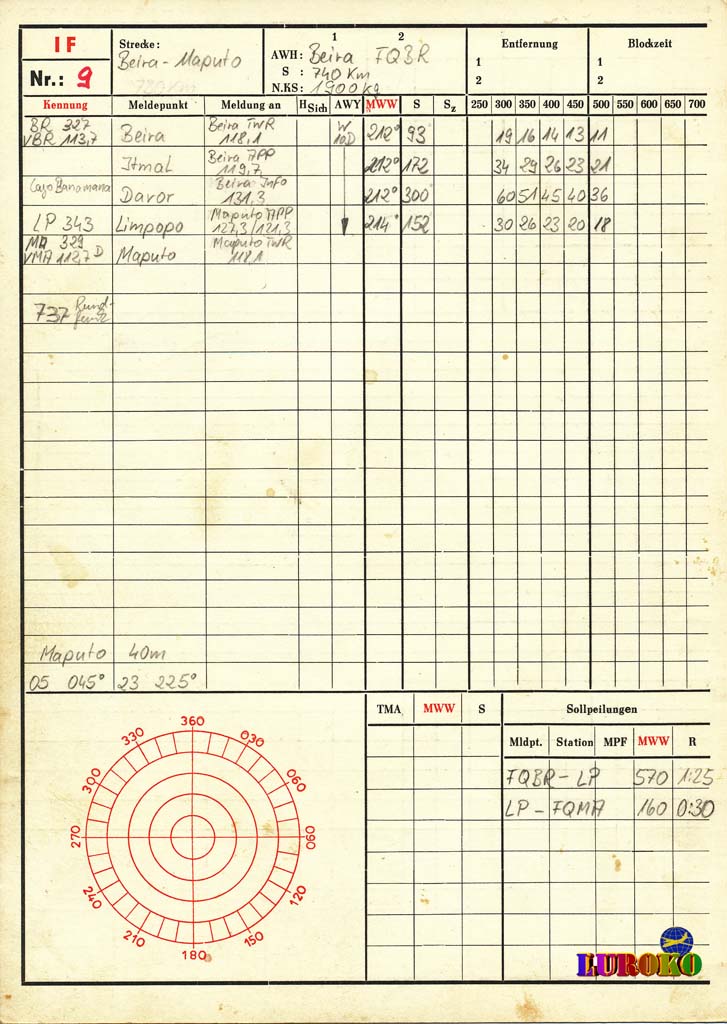 IF
Nr.: 9
Strecke:
Beira - Maputo
1 2
AWH: Beira FQBR
S : 740 Km
N.KS: 1900 kg
Entfernung
1
2
Blockzeit
1
2
Kennung Meldepunkt Meldung an H Sich AWY MWW S Sz 250 300 350 400 450 500 550 600 650 700
BR 327 Beira TWR W
VBR 113,7 Beira 118,1 10D 212° 93 19 16 14 13 11
Beira APP
Itmal 119,7 212° 172 34 29 26 23 21
Beira Info
Davor 131,3 212° 300 60 51 45 40 36
Maputo APP
LP 343 Limpopo 127,3/121,3 214° 152 30 26 23 20 18
MA 329 Maputo TWR
VMA 112,7 D Maputo 118,1
737 Rund-
funk
Maputo 40m
05 045° 23 225°
TMA MWW S Sollpeilungen
Mldpt. Station MPF MWW R
FQBR - LP 570 1:25
LP - FQMA 160 0:30
360
030
060
090
120
150
180
210
240
270
300
330
LUROKO